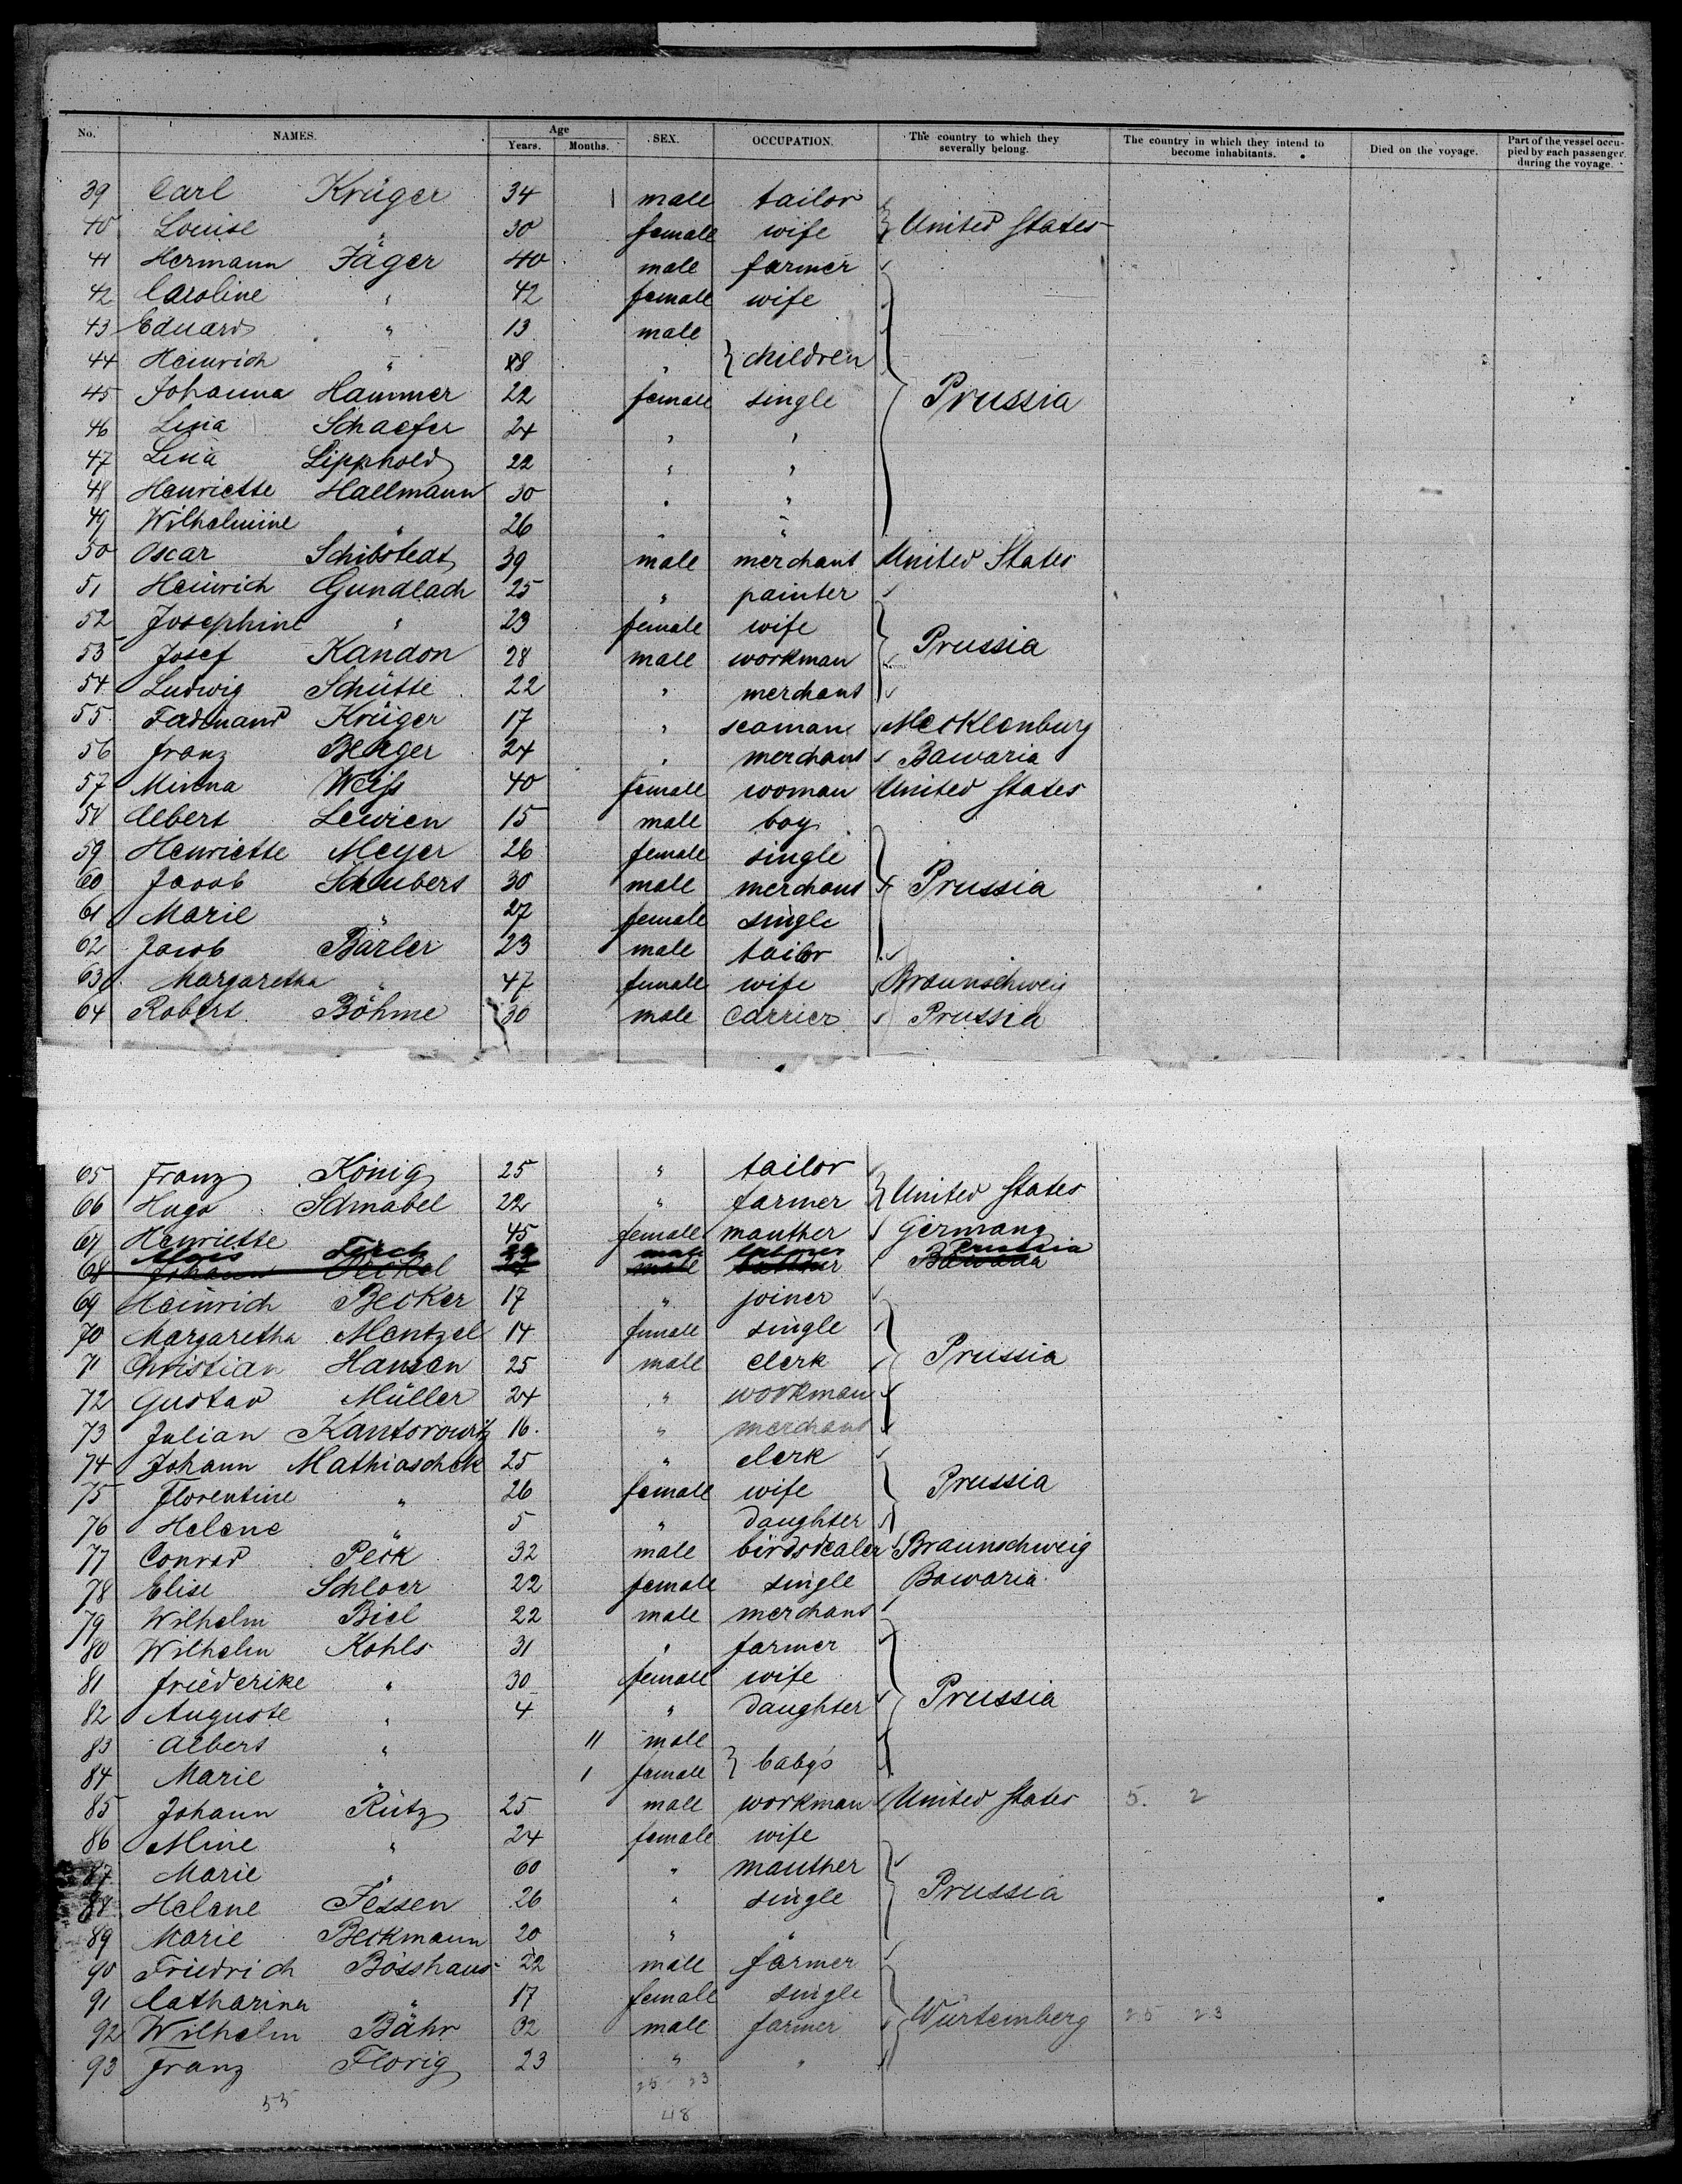 No. NAMES. Age SEX. OCCUPATION. The country to which they severally belong. The country in which they intend to become inhabitants. Died on the voyage. Part of the vessel occupied by each passenger during the voyage.
Years. Months.
39 Carl Krüger 34 male tailor
40 Louise " 30 female wife } United States
41 Hermann Jäger 40 male farmer
42 Caroline " 42 female wife
43 Eduard " 13 male
44 Heinrich " 8 " } children
45 Johanna Hammer 22 female single } Prussia
46 Lina Schaefer 24 " "
47 Lina Lipphold 22 " "
48 Henriette Hallmann 30 " "
49 Wilhelmine " 26 " "
50 Oscar Schibstedt 39 male merchant United States
51 Heinrich Gundlach 25 " painter
52 Josephine " 23 female wife
53 Josef Kandon 28 male workman } Prussia
54 Ludwig Schütte 22 " merchant
55 Ferdinand Krüger 17 " seaman Mecklenburg
56 Franz Berger 24 " merchant Bawaria
57 Minna Weiss 40 female woman United States
58 Albert Lewien 15 male boy
59 Henriette Meyer 26 female single
60 Jacob Schubert 30 male merchant } Prussia
61 Marie " 27 female single
62 Jacob Bärler 23 male tailor
63 Margaretha " 47 female wife Braunschweig
64 Robert Böhme 30 male Carrier Prussia
65 Franz König 25 " tailor
66 Hugo Schnabel 22 " farmer } United States
67 Henriette 45 female mauther Germany
68 Johann male Bawaria Prussia
69 Heinrich Becker 17 " joiner
70 Margaretha Mentzel 14 female single
71 Christian Hansen 25 male clerk } Prussia
72 Gustav Müller 24 " workman
73 Julian Kantorowitz 16. " merchant
74 Johann Mathiaschek 25 " clerk
75 Florentine " 26 female wife } Prussia
76 Helene " 5 " daughter
77 Conrad Peck 32 male birdsdealer Braunschweig
78 Elise Schloer 22 female single Bawaria
79 Wilhelm Biel 22 male merchant
80 Wilhelm Kohls 31 " farmer
81 Friederike " 30 female wife
82 Auguste " 4 " daughter } Prussia
83 Albert " 11 male
84 Marie " 1 female } baby's
85 Johann Rütz 25 male workman United States 5. 2
86 Mine " 24 female wife
87 Marie " 60 " mauther
88 Helene Jessen 26 " single } Prussia
89 Marie Beckmann 20 " "
90 Friedrich Bösshaus 22 male farmer
91 Catharina " 17 female single
92 Wilhelm Bähr 32 male farmer } Würtemberg 25 23
93 Franz Florig 23 " "
25 23
55
48